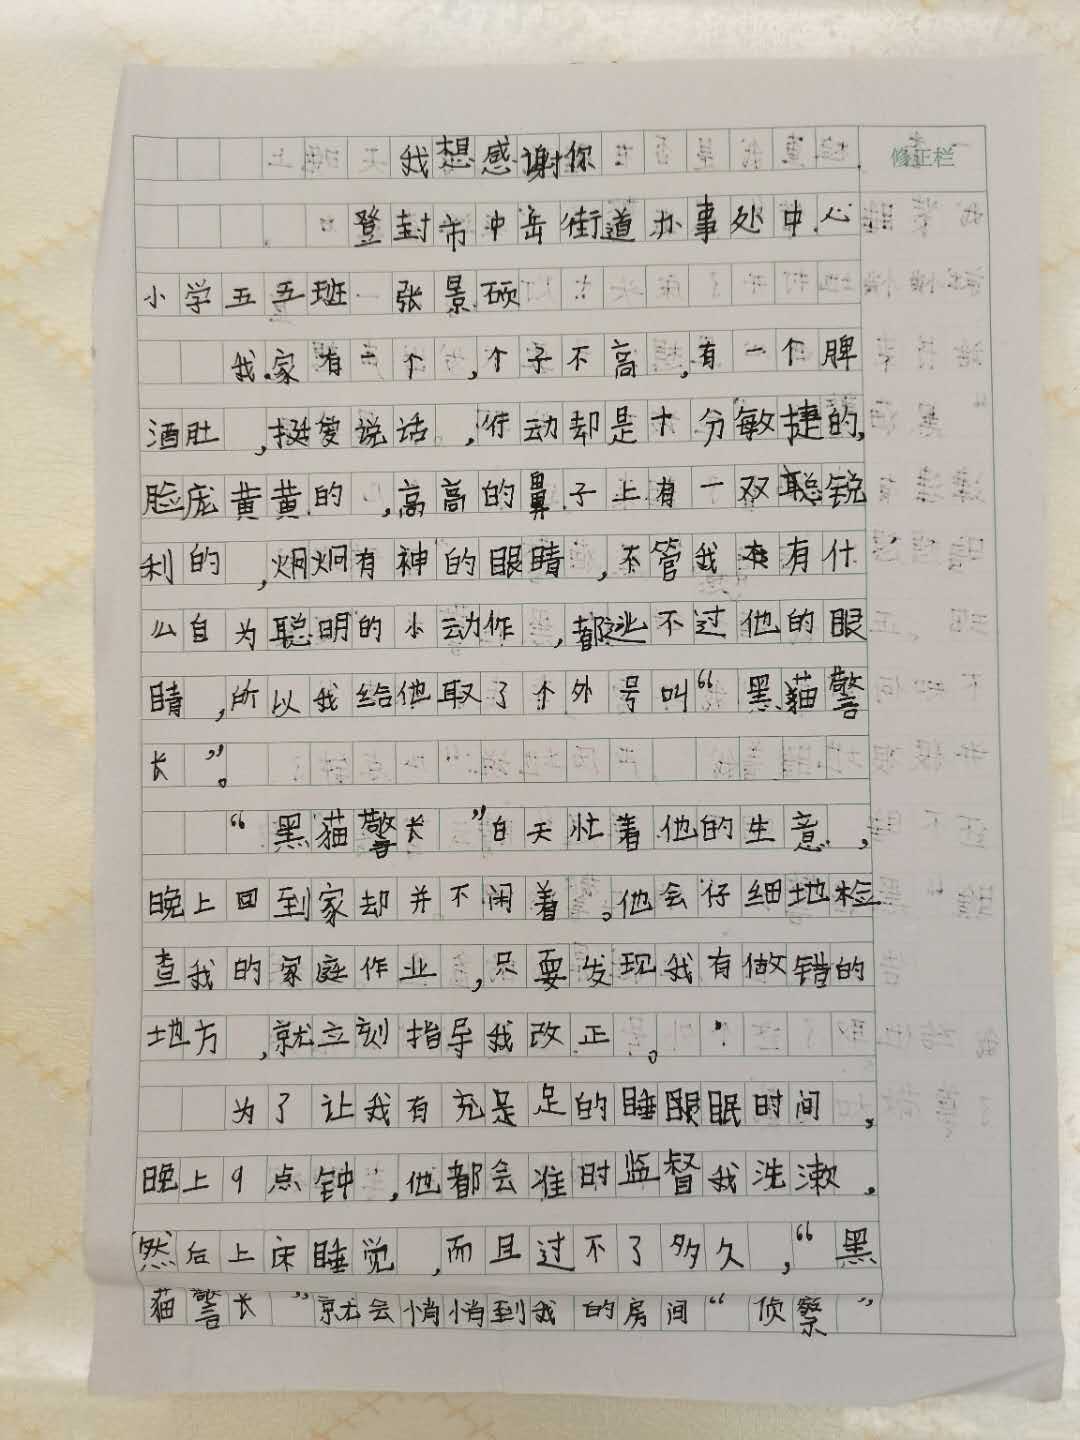 我想感谢你
修正栏
登封市中岳街道办事处中心
小学五五班 张景硕
我家有一个,个子不高,有一个脾
酒肚,挺爱说话,行动却是十分敏捷的,
脸庞黄黄的,高高的鼻子上有一双聪锐
利的,炯炯有神的眼睛,不管我有什
么自为聪明的小动作,都逃不过他的眼
睛,所以我给他取了个外号叫“黑猫警
长”。
“黑猫警长”白天忙着他的生意,
晚上回到家却并不闲着。他会仔细地检
查我的家庭作业,只要发现我有做错的
地方,就立刻指导我改正。
为了让我有充足的睡眠时间,
晚上9点钟,他都会准时监督我洗漱,
然后上床睡觉,而且过不了多久,“黑
猫警长”就会悄悄到我的房间“侦察”